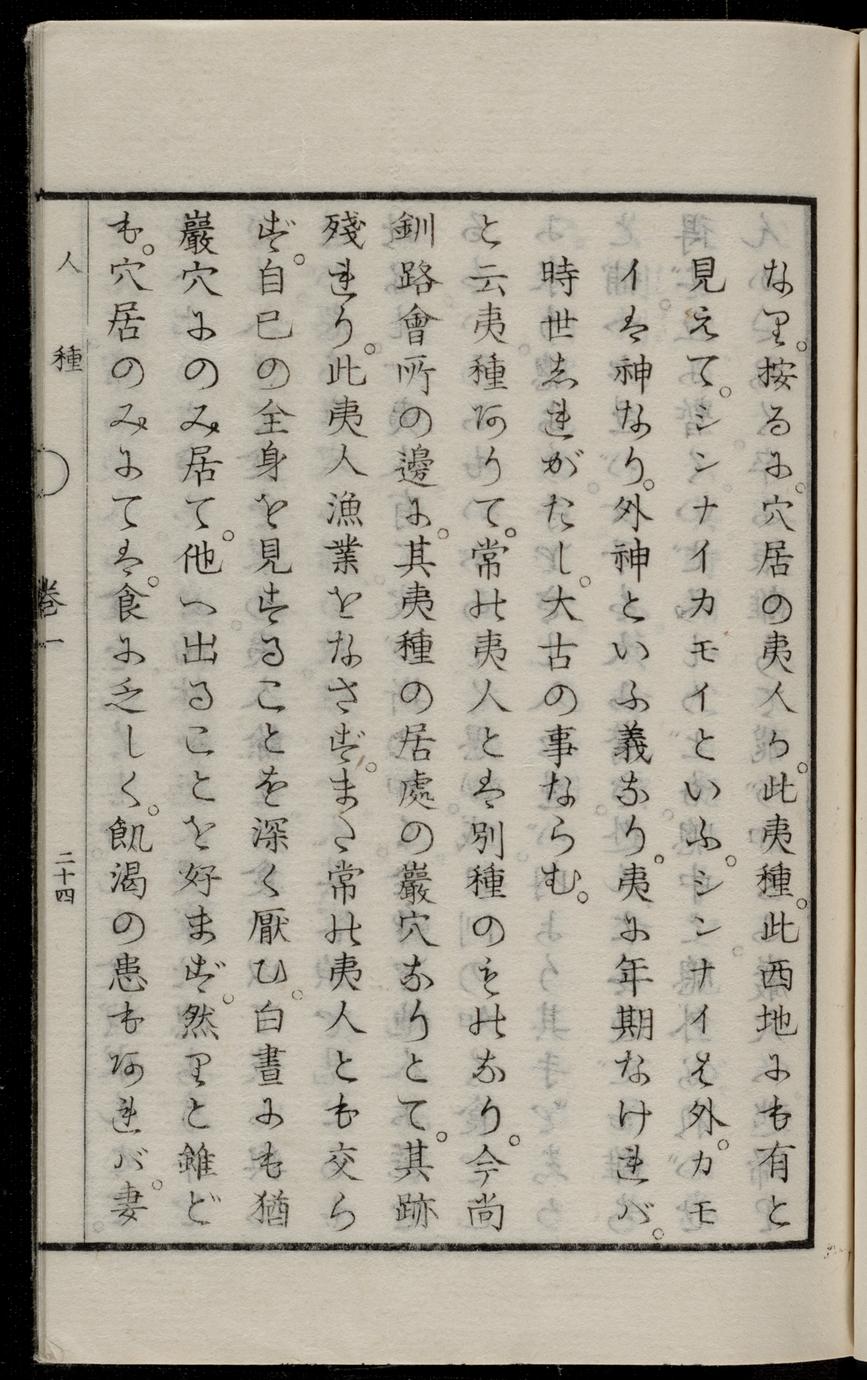 なり。按るに。穴居の夷人ら。此夷種。此西地にも有と
見えて。シンナイカモイといふ。シンナイは外。カモ
イは神なり。外神といふ義なり。夷に年期なければ。
時世しれがたし。大古の事ならむ。
と云夷種ありて。常の夷人とは別種のものなり。今尚
釧路會所の邊に。其夷種の居處の巖穴なりとて。其跡
残れり。此夷人漁業をなさず。また常の夷人とも交ら
ず。自己の全身を見することを深く厭ひ。白晝にも猶
巖穴にのみ居て。他へ出ることを好まず。然りと雖ど
も。穴居のみにては。食に乏しく。飢渇の患もあれば。妻
人種
巻一
二十四